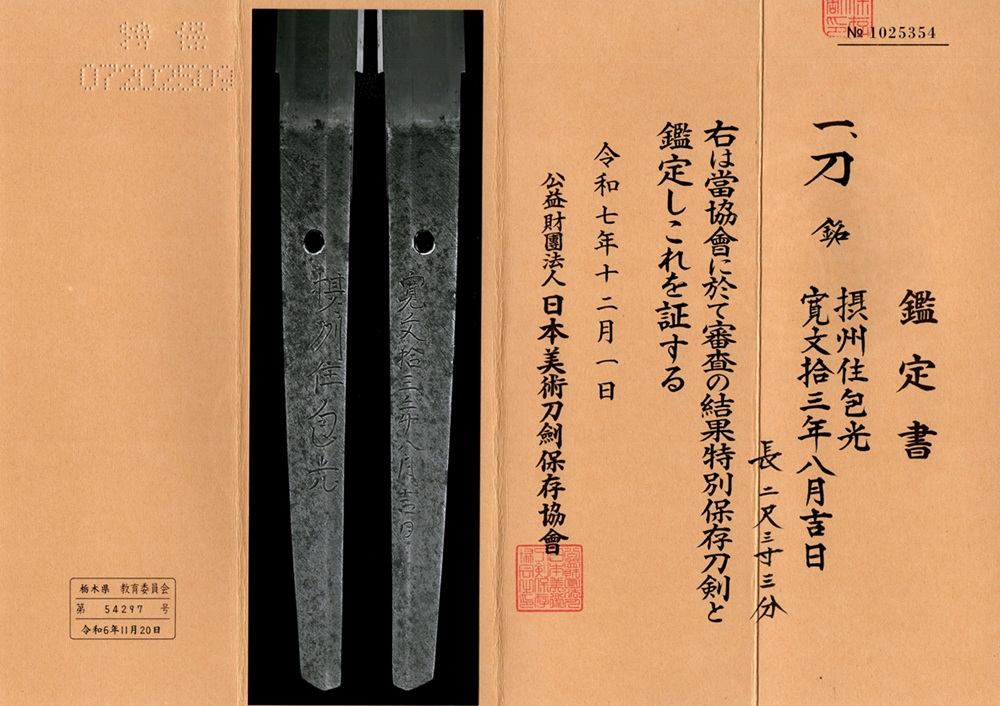 № 1025354
鑑定書
一、刀 銘 摂州住包光
寛文拾三年八月吉日
長二尺三寸三分
右は當協會に於て審査の結果特別保存刀剣と
鑑定しこれを証する
令和七年十二月一日
公益財團法人 日本美術刀劍保存協會
寛文拾三年八月吉日
摂州住包光
特保
07202509
栃木県 教育委員会
第 54297 号
令和6年11月20日